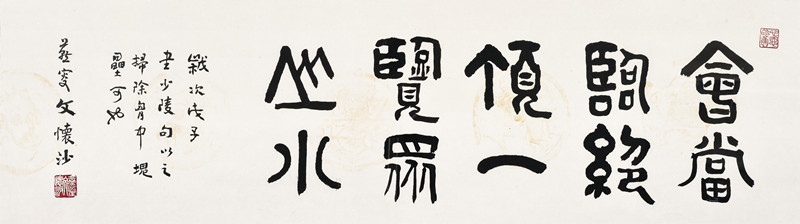 會當
臨絕
頂一
覽眾
山小
歲次戊子
書少陵句以之
掃除胷中塊
壘可也
燕叟文懷沙